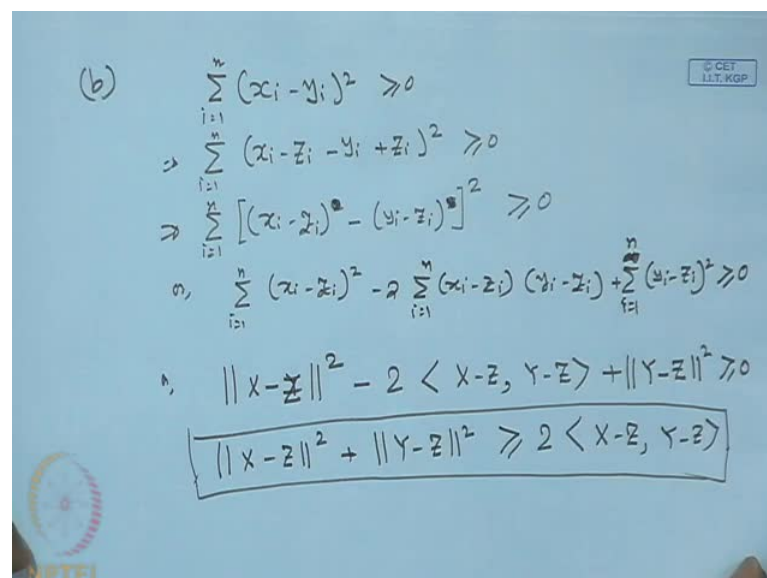 (b) \sum_{i=1}^{n} (x_i - y_i)^2 ≥ 0
© CET
I.I.T. KGP
⇒ \sum_{i=1}^{n} (x_i - z_i - y_i + z_i)^2 ≥ 0
⇒ \sum_{i=1}^{n} [(x_i - z_i) - (y_i - z_i)]^2 ≥ 0
or, \sum_{i=1}^{n} (x_i - z_i)^2 - 2 \sum_{i=1}^{n} (x_i - z_i) (y_i - z_i) + \sum_{i=1}^{n} (y_i - z_i)^2 ≥ 0
or, ||X - Z||^2 - 2 < X-Z, Y-Z > + ||Y-Z||^2 ≥ 0
||X - Z||^2 + ||Y-Z||^2 ≥ 2 < X-Z, Y-Z >
NPTEL